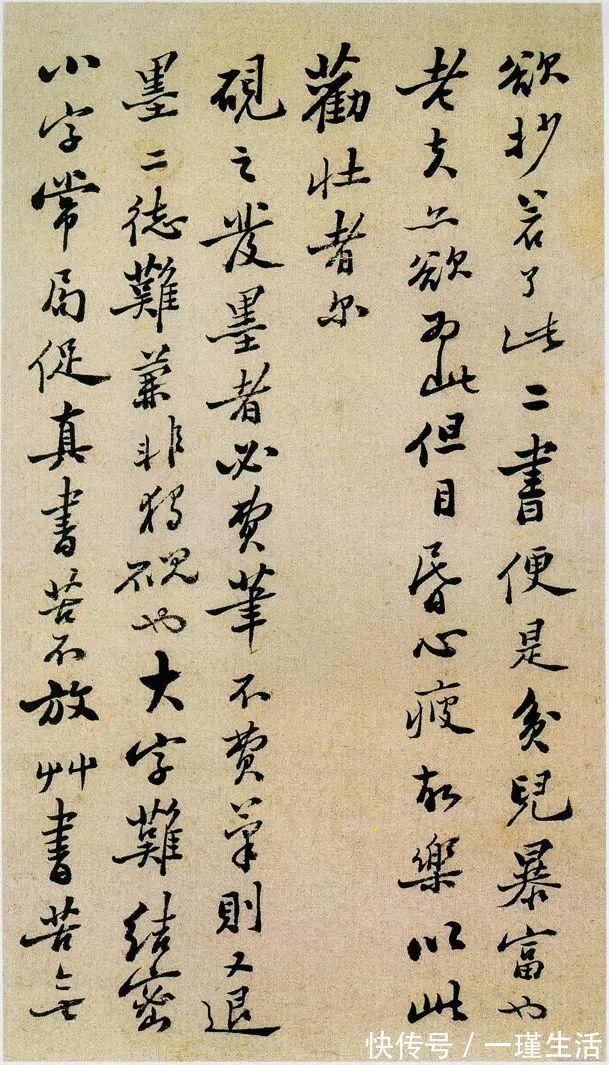 欲抄若了此二書便是貧兒暴富也
老夫亦欲為此但目昏心疲故樂以此
勸壯者尔
硯之發墨者必費筆不費筆則又退
墨二德難兼非獨硯也大字難結密
小字常局促真書苦不放艸書苦無
快传号/一瑾生活